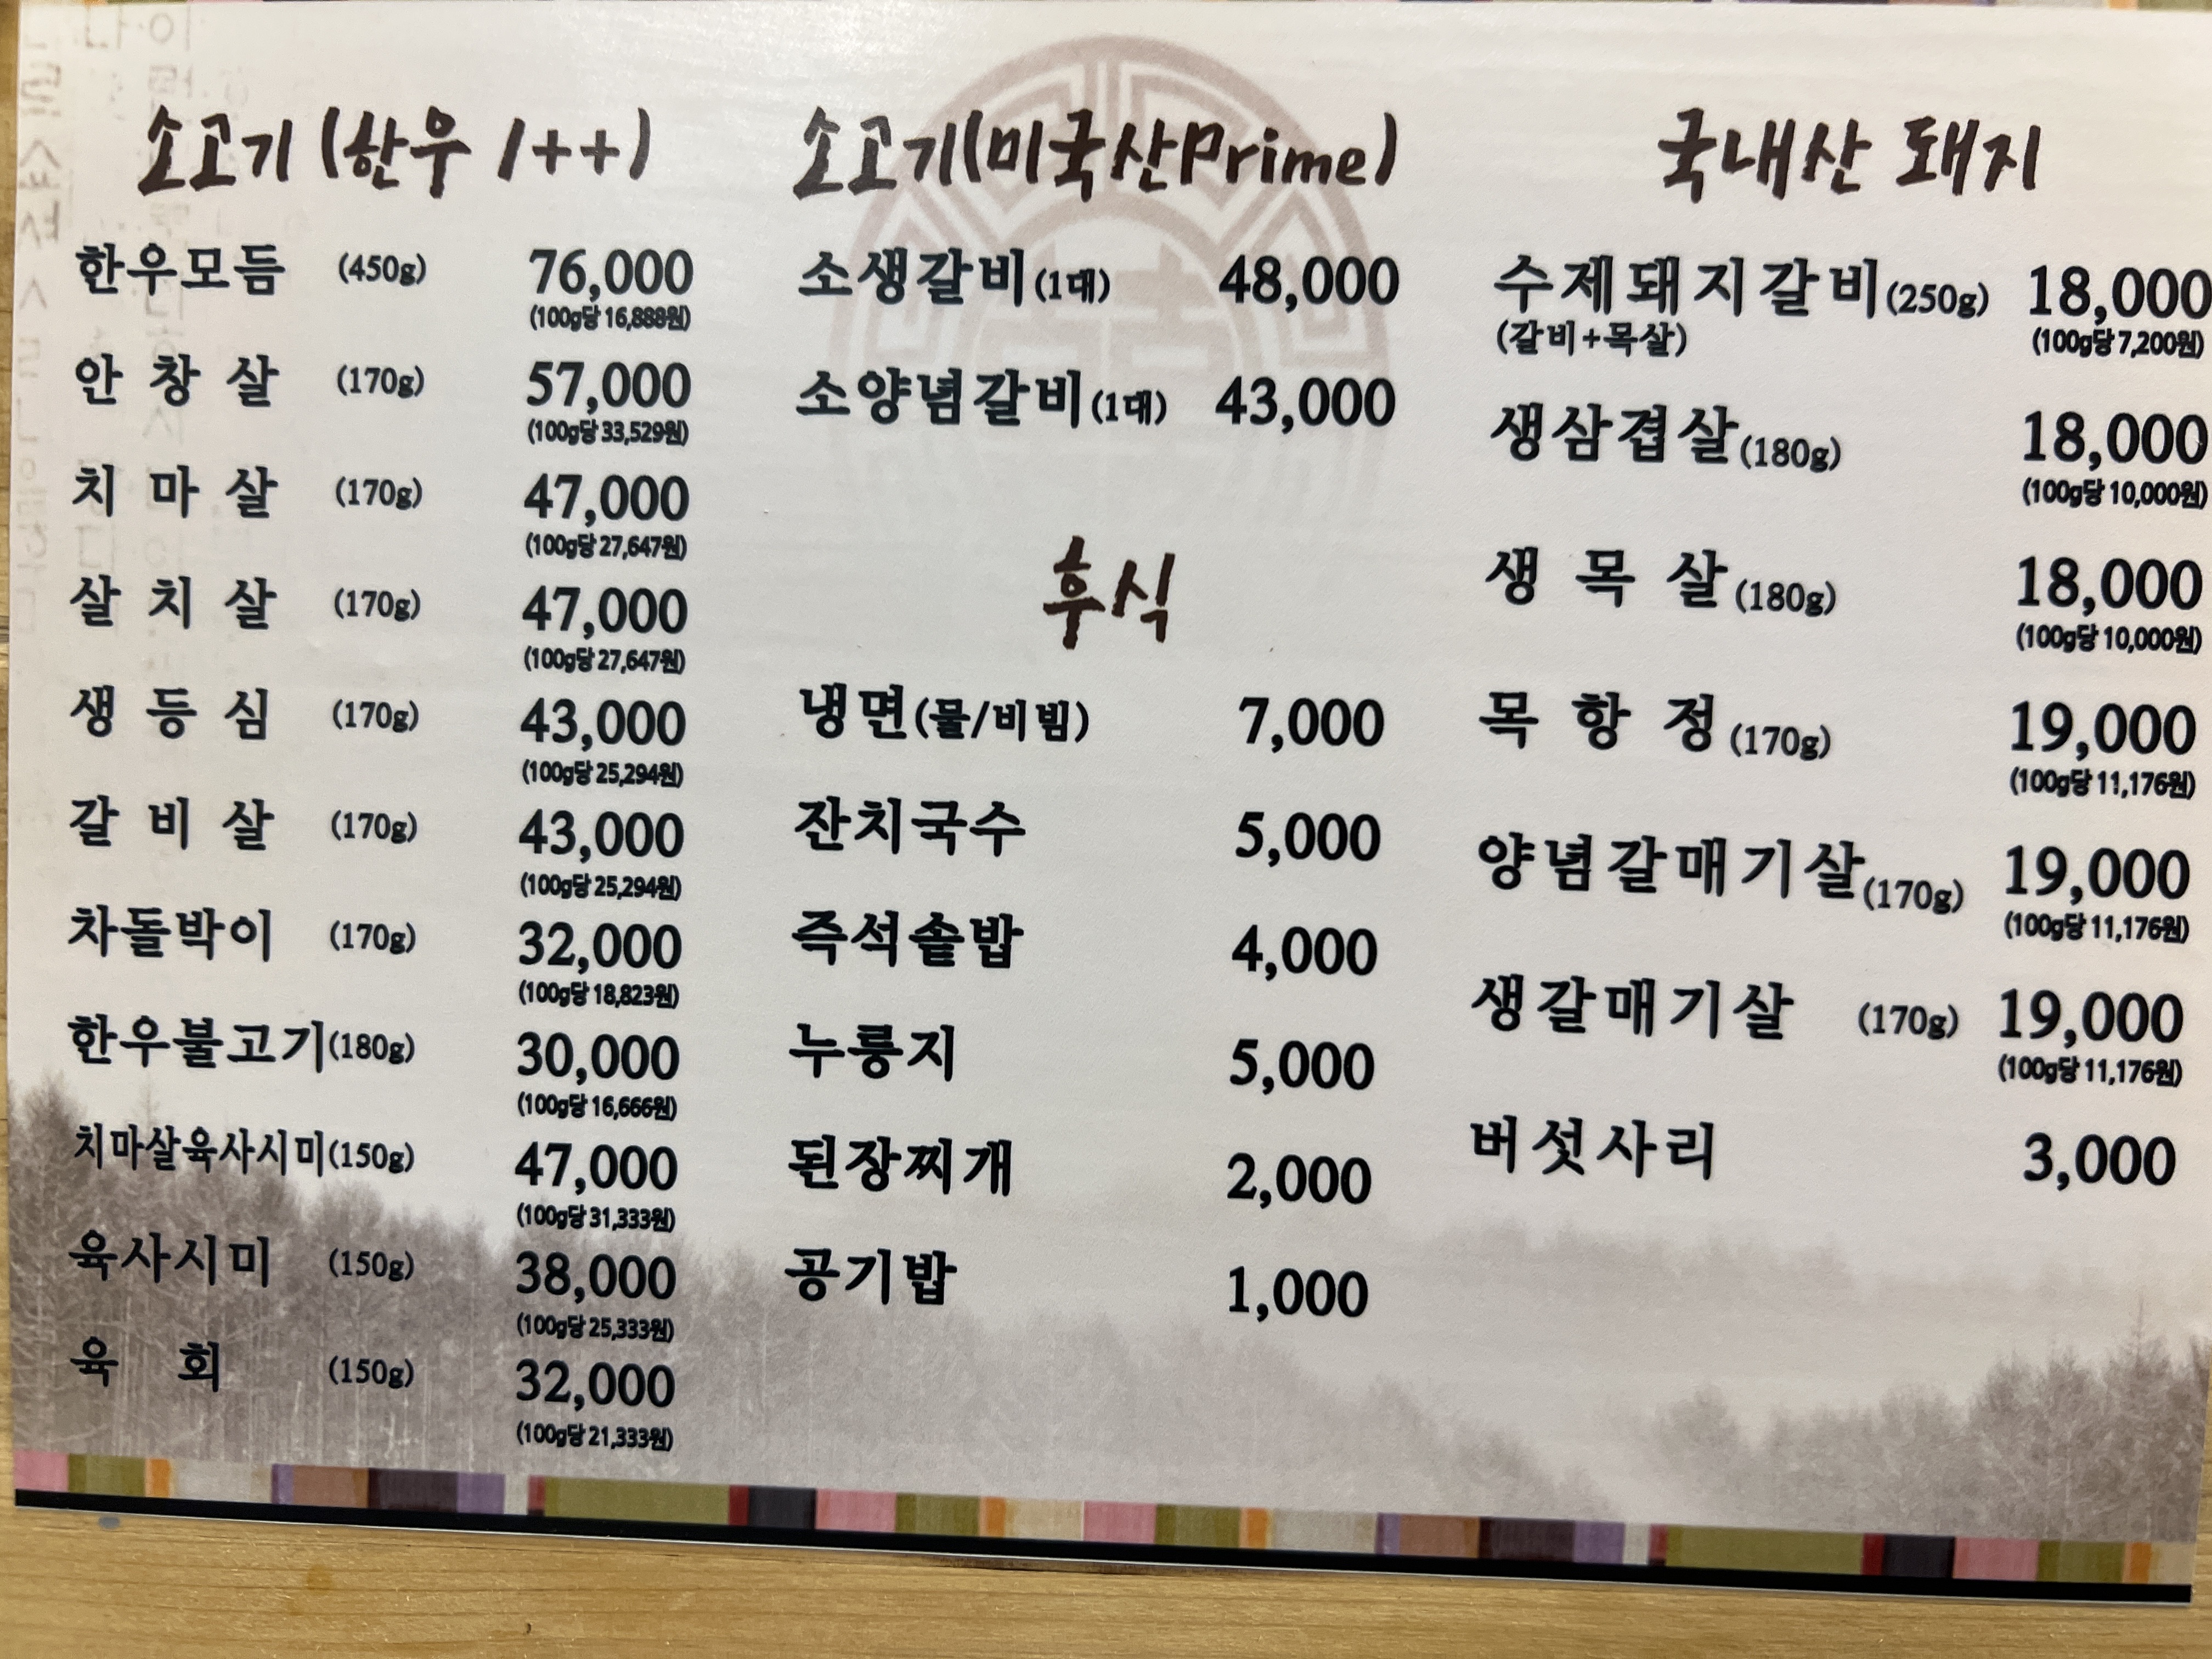 소고기 (한우 1++)
한우모듬 (450g) 76,000
(100g당 16,888원)
안창살 (170g) 57,000
(100g당 33,529원)
치마살 (170g) 47,000
(100g당 27,647원)
살치살 (170g) 47,000
(100g당 27,647원)
생등심 (170g) 43,000
(100g당 25,294원)
갈비살 (170g) 43,000
(100g당 25,294원)
차돌박이 (170g) 32,000
(100g당 18,823원)
한우불고기(180g) 30,000
(100g당 16,666원)
치마살육사시미(150g) 47,000
(100g당 31,333원)
육사시미 (150g) 38,000
(100g당 25,333원)
육회 (150g) 32,000
(100g당 21,333원)
소고기(미국산Prime)
소생갈비(1대) 48,000
소양념갈비(1대) 43,000
후식
냉면(물/비빔) 7,000
잔치국수 5,000
즉석솥밥 4,000
누룽지 5,000
된장찌개 2,000
공기밥 1,000
국내산 돼지
수제돼지갈비(250g) 18,000
(갈비+목살) (100g당 7,200원)
생삼겹살(180g) 18,000
(100g당 10,000원)
생목살(180g) 18,000
(100g당 10,000원)
목항정(170g) 19,000
(100g당 11,176원)
양념갈매기살(170g) 19,000
(100g당 11,176원)
생갈매기살 (170g) 19,000
(100g당 11,176원)
버섯사리 3,000